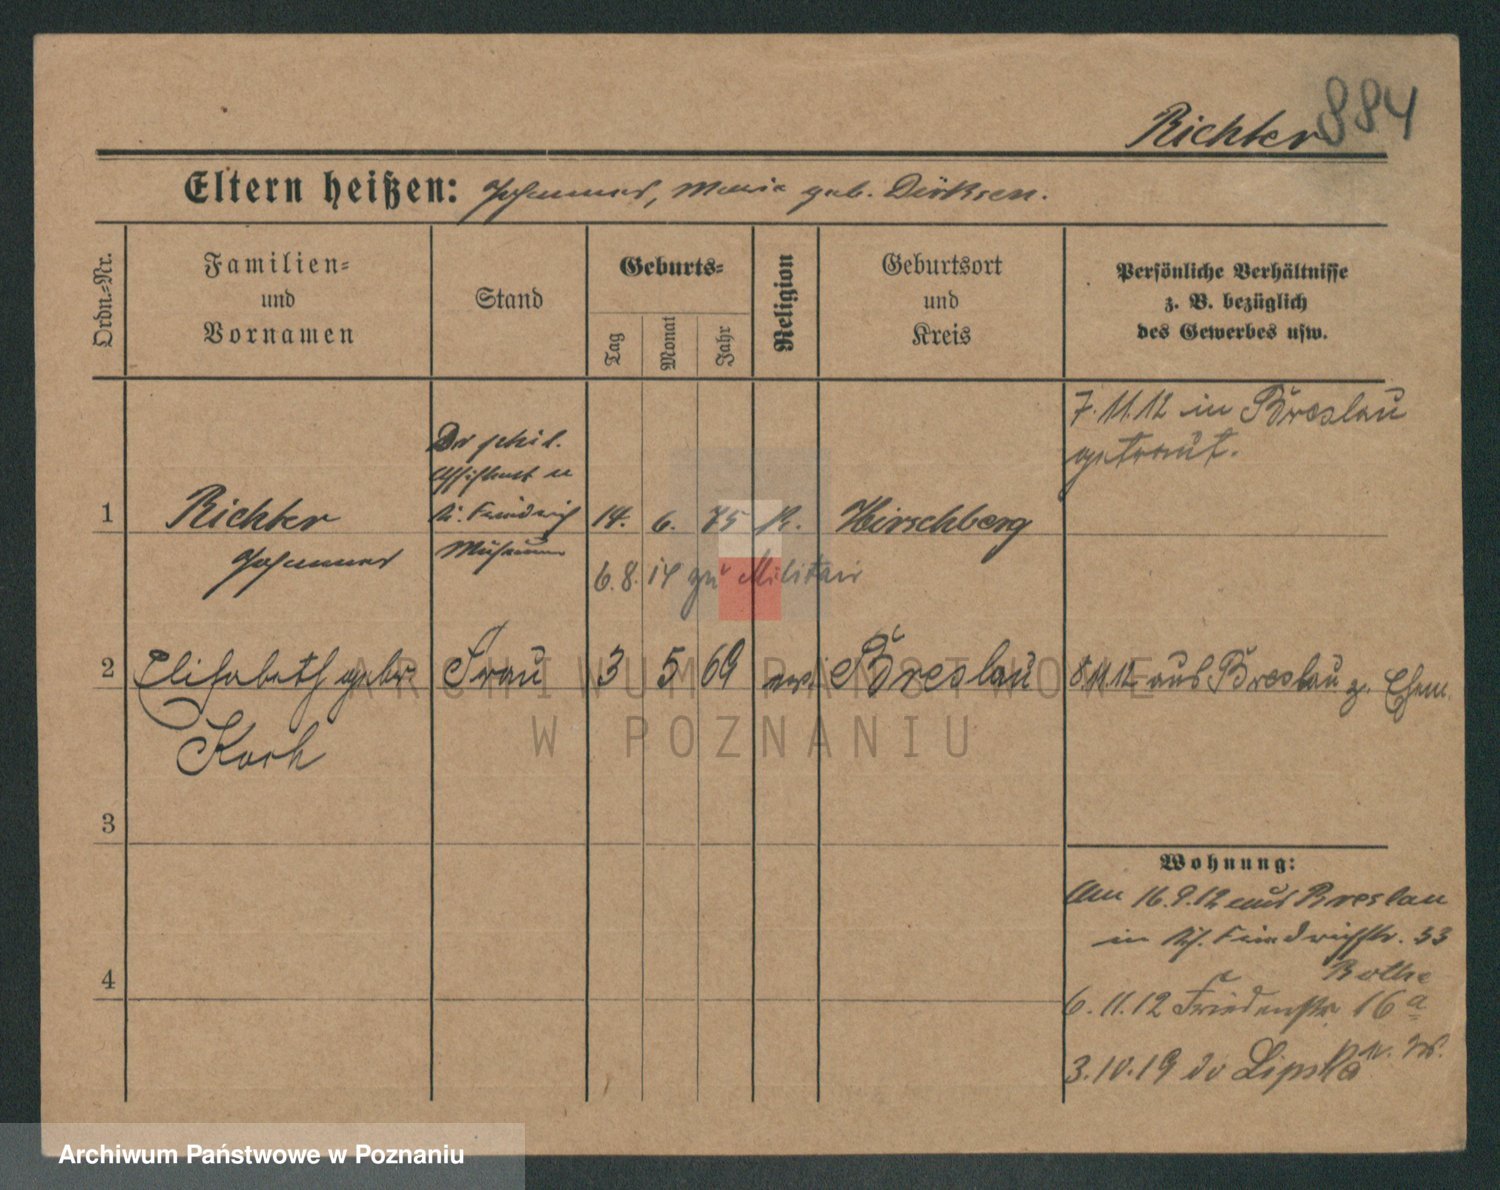 Richter 884
Eltern heißen: Johannes, Maria geb. Dirksen.
Ordn.-Nr.
Familien-
und
Vornamen
Stand
Geburts-
Tag
Monat
Jahr
Religion
Geburtsort
und
Kreis
Persönliche Verhältnisse
z. B. bezüglich
des Gewerbes usw.
7.11.12 in Breslau
getraut.
1
Richter
Johannes
Dr phil.
Assistent
Friedrich
Museum
14. 6. 75 K. Hirschberg
6.8.14 zu Militair
2
Elisabeth gebr
Koch
Frau
3 5 69 ev Breslau
8.11.12 aus Breslau z. Ehem.
3
4
Wohnung:
Am 16.9.12 aus Breslau
in Friedrichstr. 33
Rothe
6.11.12 Friedenstr. 16a
3.10.19 do Lipska
ARCHIWUM PAŃSTWOWE
W POZNANIU
Archiwum Państwowe w Poznaniu